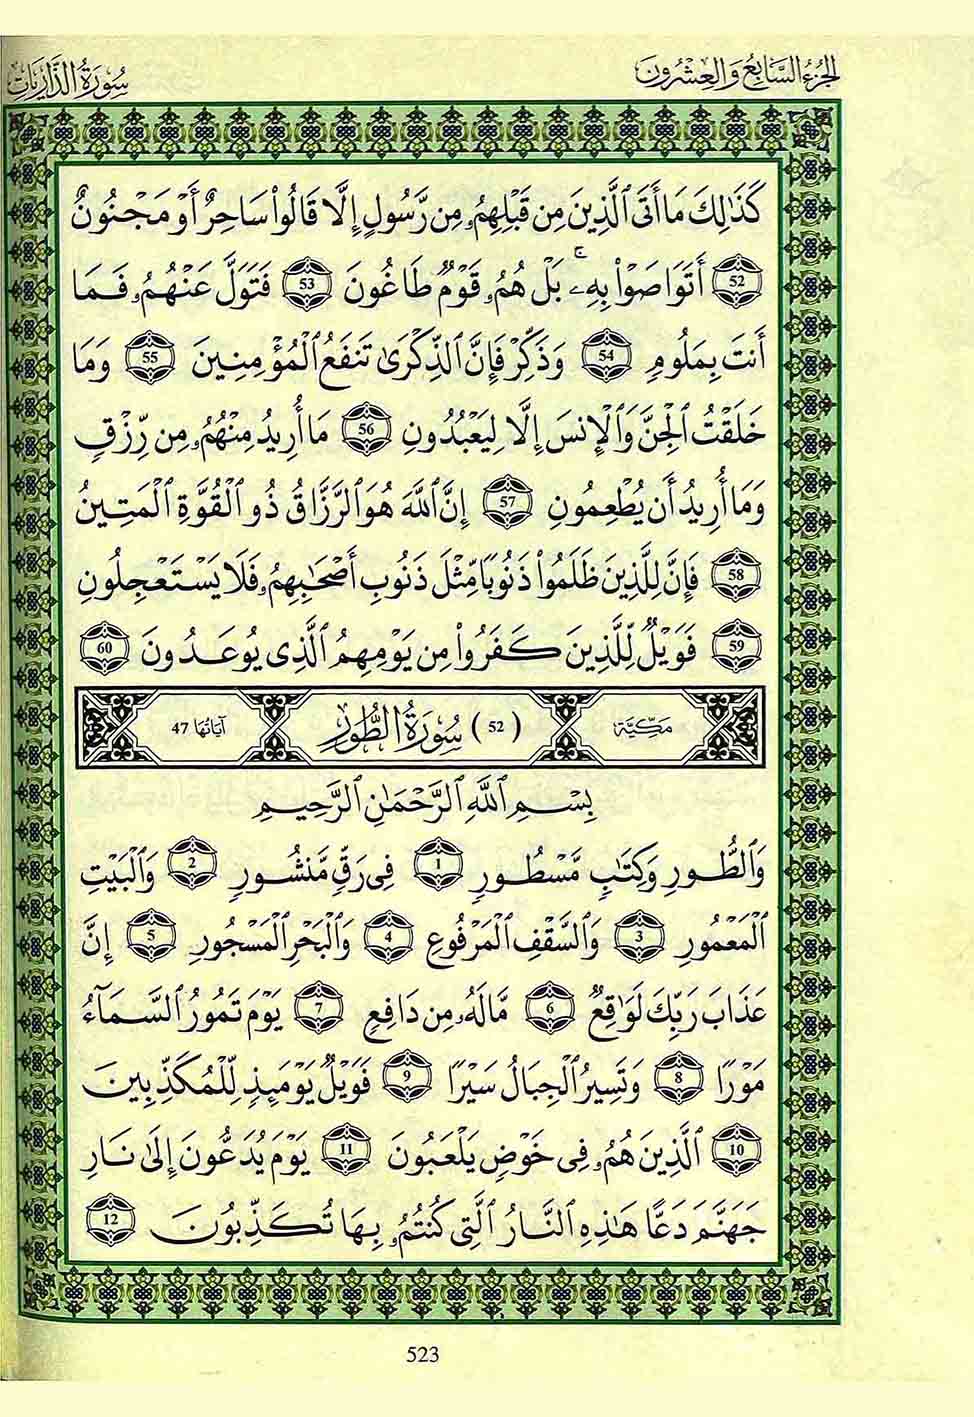 الجزء السابع والعشرون
سورة الذاريات
كَذَٰلِكَ مَا أَتَى ٱلَّذِينَ مِن قَبْلِهِمُۥ مِن رَّسُولٍ إِلَّا قَالُوا۟ سَاحِرٌ أَوْ مَجْنُونٌ
52 أَتَوَاصَوْا۟ بِهِۦ ۚ بَلْ هُمُۥ قَوْمٌ طَاغُونَ 53 فَتَوَلَّ عَنْهُمُۥ فَمَا
أَنتَ بِمَلُومٍ 54 وَذَكِّرْ فَإِنَّ ٱلذِّكْرَىٰ تَنفَعُ ٱلْمُؤْمِنِينَ 55 وَمَا
خَلَقْتُ ٱلْجِنَّ وَٱلْإِنسَ إِلَّا لِيَعْبُدُونِ 56 مَا أُرِيدُ مِنْهُمُۥ مِن رِّزْقٍ
وَمَا أُرِيدُ أَن يُطْعِمُونِ 57 إِنَّ ٱللَّهَ هُوَ ٱلرَّزَّاقُ ذُو ٱلْقُوَّةِ ٱلْمَتِينُ
58 فَإِنَّ لِلَّذِينَ ظَلَمُوا۟ ذَنُوبًا مِّثْلَ ذَنُوبِ أَصْحَٰبِهِمُۥ فَلَا يَسْتَعْجِلُونِ
59 فَوَيْلٌ لِّلَّذِينَ كَفَرُوا۟ مِن يَوْمِهِمُ ٱلَّذِى يُوعَدُونَ 60
مكية (52) سورة الطور آياتها 47
بِسْمِ ٱللَّهِ ٱلرَّحْمَٰنِ ٱلرَّحِيمِ
وَٱلطُّورِ وَكِتَٰبٍ مَّسْطُورٍ 1 فِى رَقٍّ مَّنشُورٍ 2 وَٱلْبَيْتِ
ٱلْمَعْمُورِ 3 وَٱلسَّقْفِ ٱلْمَرْفُوعِ 4 وَٱلْبَحْرِ ٱلْمَسْجُورِ 5 إِنَّ
عَذَابَ رَبِّكَ لَوَٰقِعٌ 6 مَّا لَهُۥ مِن دَافِعٍ 7 يَوْمَ تَمُورُ ٱلسَّمَآءُ
مَوْرًا 8 وَتَسِيرُ ٱلْجِبَالُ سَيْرًا 9 فَوَيْلٌ يَوْمَئِذٍ لِّلْمُكَذِّبِينَ
10 ٱلَّذِينَ هُمُۥ فِى خَوْضٍ يَلْعَبُونَ 11 يَوْمَ يُدَعُّونَ إِلَىٰ نَارِ
جَهَنَّمَ دَعًّا هَٰذِهِ ٱلنَّارُ ٱلَّتِى كُنتُمُۥ بِهَا تُكَذِّبُونَ 12
523